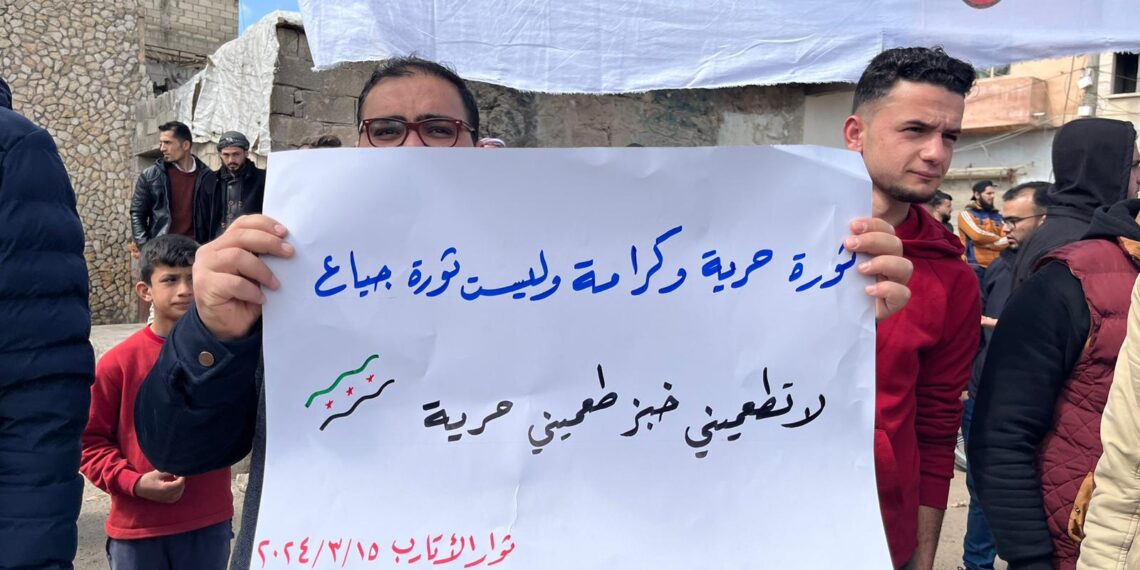 ثورة حرية وكرامة وليست ثورة جياع
لا تطعميني خبز طعميني حرية
ثوار الأتارب ٢٠٢٤/٣/١٥